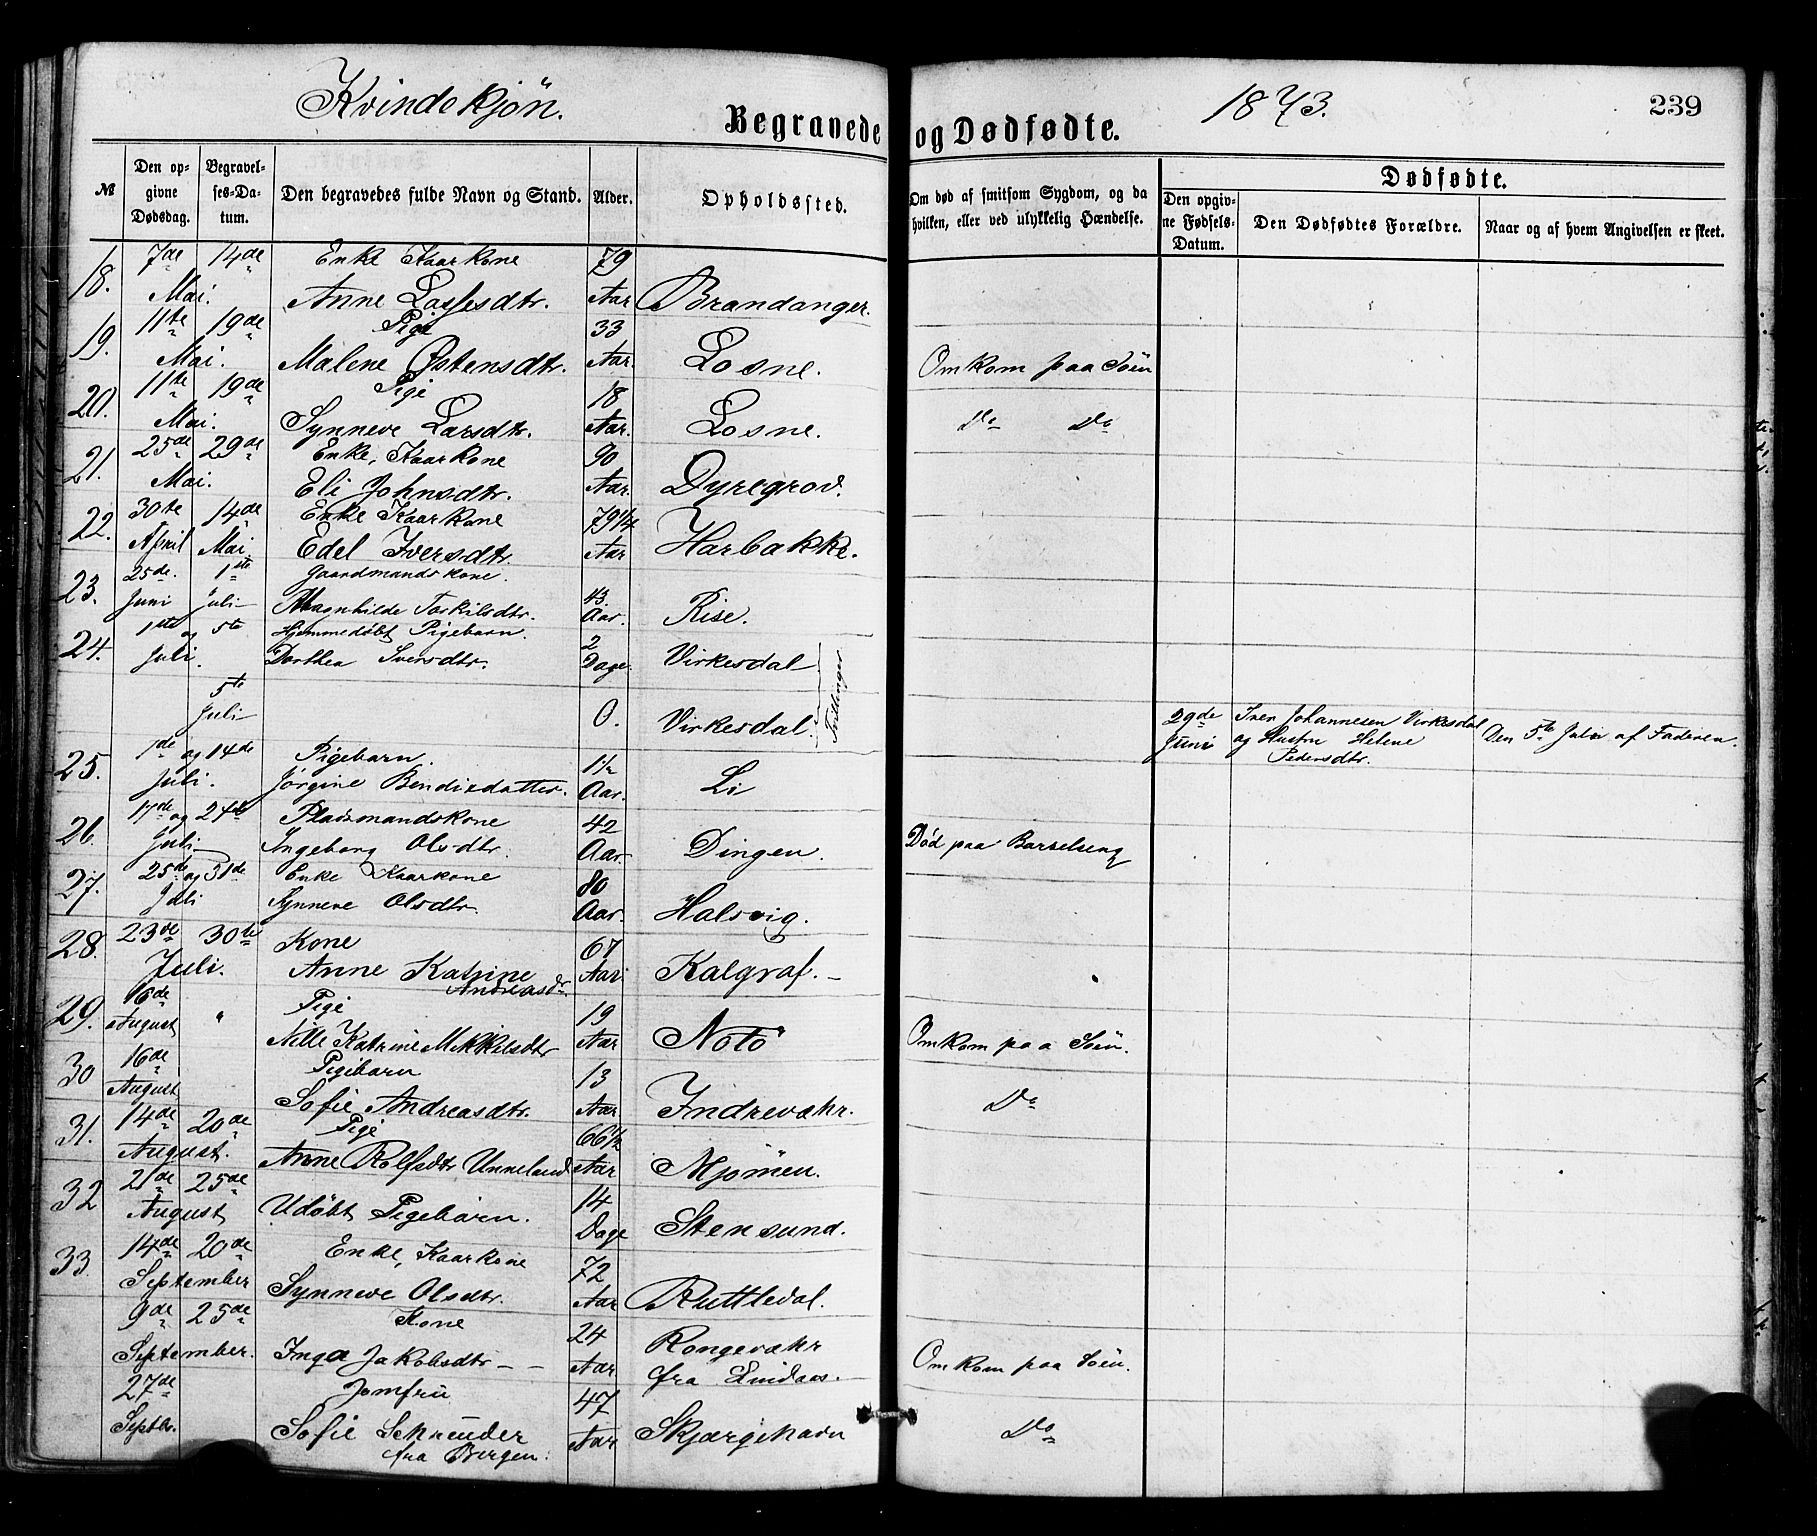 Kvindekjøn.
Begravede og Dødfødte.
1873.
239
№
Den opgivne Dødsdag.
Begravelses-Datum.
Den begravedes fulde Navn og Stand.
Alder.
Opholdssted.
Om død af smitsom Sygdom, og da hvilken, eller ved ulykkelig Hændelse.
Dødfødte.
Den opgivne Fødsels-Datum.
Den Dødfødtes Forældre.
Naar og af hvem Angivelsen er skeet.
18. 7de 14de Mai. Enke Kaarkone Anne Lassesdtr. 79 Aar Brandanger.
19. 11te 19de Mai. Pige Malene Østensdtr. 33 Aar. Losne. Omkom paa Söen
20. 11te 19de Mai. Pige Synneve Larsdtr. 18 Aar. Losne. Do Do
21. 25de 29de Mai. Enke, Kaarkone Eli Johnsdtr. 90 Aar. Dyregrov.
22. 30te April 14de Mai. Enke Kaarkone Edel Iversdtr. 79 1/4 Aar Harbakke.
23. 25de Juni 1ste Juli Gaardmandskone. Magnhilde Torkilsdtr. 43 Aar. Rise.
24. 1ste og 5te Juli. Hjemmedøbt Pigebarn. Dorthea Iversdtr. 2 Dage Virkesdal Tvillinger
5te Juli 0. Virkesdal 29de Juni Iver Johannesen Virkesdal og Hustru Helene Pedersdtr. Den 5te Juli af Faderen.
25. 1de og 14de Juli. Pigebarn. Jørgine Bendixdatter. 1 1/2 Aar. Li
26. 17de og 24de Juli Pladsmandskone Ingeborg Olsdtr. 42 Aar Dingen. Død paa Barselseng
27. 25de og 31de Juli Enke Kaarkone Synneve Olsdtr. 80 Aar. Halsvig.
28. 23de 30te Juli. Kone Anne Katrine Andreasdr. 67 Aar. Kalgraf.
29. 16de August " Pige Nille Katrine Mikkelsdtr 19 Aar Notö Omkom paa Söen.
30 16de August Pigebarn Sofie Andreasdtr. 13 Aar Indrevær. Do
31. 14de 20de August. Pige Anne Rolfsdtr Unneland 66 1/2 Aar Mjömen.
32 21de 25de August Udøbt Pigebarn. 14 Dage Stensund.
33. 14de 20de September Enke, Kaarkone Synneve Olsdtr. 72 Aar Ruttledal.
9de 25de September. Kone Inga Jakobsdtr 24 Aar Rongevær fra Lindaas. Omkom paa Söen.
27de Septbr. Jomfru Sofie Schreuder fra Bergen. 47 Aar Skjærgehavn Do